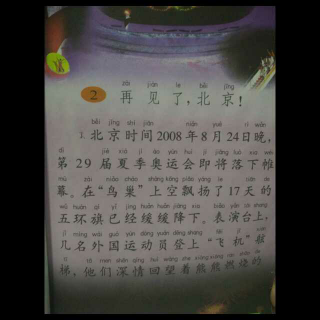 2 再见了,北京!
zài jiàn le běi jīng
běi jīng shí jiān nián yuè rì wǎn
1.北京时间2008年8月24日晚,
dì jiè xià jì ào yùn huì jí jiāng luò xià wéi
第29届夏季奥运会即将落下帷
mù zài niǎo cháo shàng kōng piāo yáng le tiān de
幕。在“鸟巢”上空飘扬了17天的
wǔ huán qí yǐ jīng huǎn huǎn jiàng xià biǎo yǎn tái shàng
五环旗已经缓缓降下。表演台上,
jǐ míng wài guó yùn dòng yuán dēng shàng fēi jī xián
几名外国运动员登上“飞机”舷
tī tā men shēn qíng huí wàng zhe xióng xióng rán shāo de
梯,他们深情回望着熊熊燃烧的